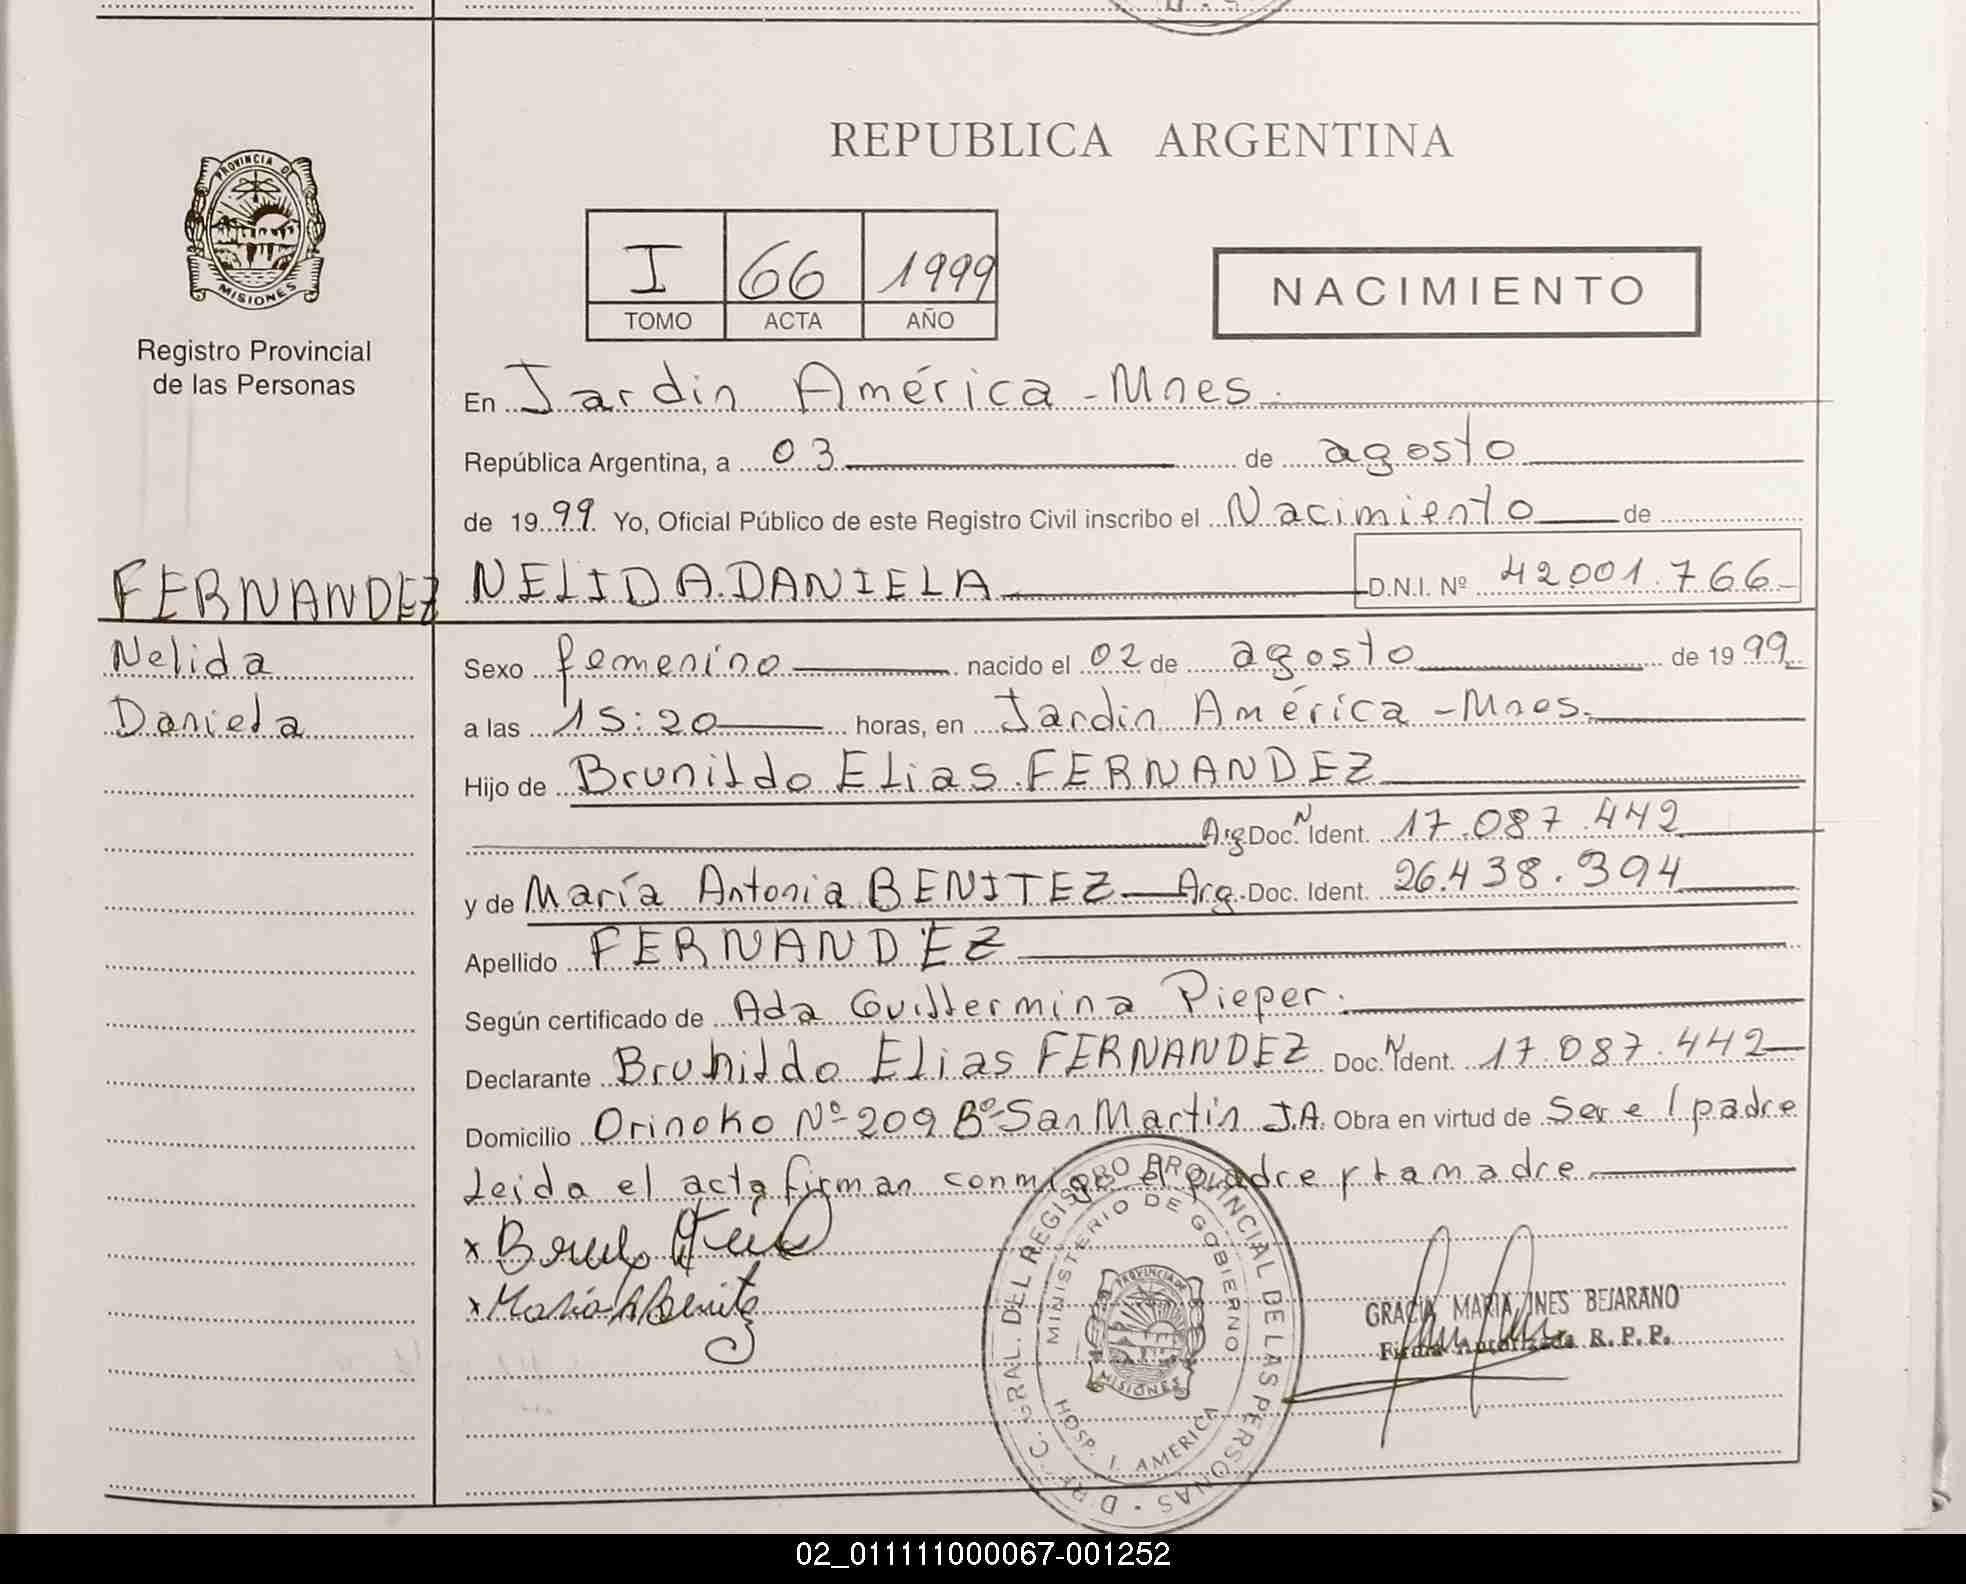 REPUBLICA ARGENTINA
PROVINCIA DE
MISIONES
Registro Provincial
de las Personas
I 66 1999
TOMO ACTA AÑO
NACIMIENTO
En Jardin América - Mnes.
República Argentina, a 03 de agosto
de 1999 Yo, Oficial Público de este Registro Civil inscribo el Nacimiento de
FERNANDEZ NELIDA DANIELA D.N.I. Nº 42.001.766
Nelida
Daniela
Sexo femenino nacido el 02 de agosto de 1999
a las 15:20 horas, en Jardin América - Mnes.
Hijo de Brunildo Elias FERNANDEZ
Arg Doc. N Ident. 17.087.442
y de María Antonia BENITEZ Arg. Doc. Ident. 26.438.394
Apellido FERNANDEZ
Según certificado de Ada Guillermina Pieper.
Declarante Brunildo Elias FERNANDEZ Doc. N Ident. 17.087.442
Domicilio Orinoko Nº 209 Bº San Martín J.A. Obra en virtud de Ser el padre
Leida el acta firman conmigo el padre y la madre
x
x María A Benitez
GRACIA MARIA INES BEJARANO
Firma Autorizada R.P.P.
GRAL. DEL REGISTRO PROVINCIAL DE LAS PERSONAS
MINISTERIO DE GOBIERNO
PROVINCIA DE
MISIONES
HOSP. J. AMERICA
02_011111000067-001252